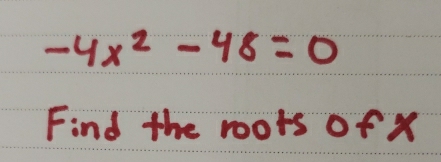 -4x² - 48 = 0
Find the roots of x